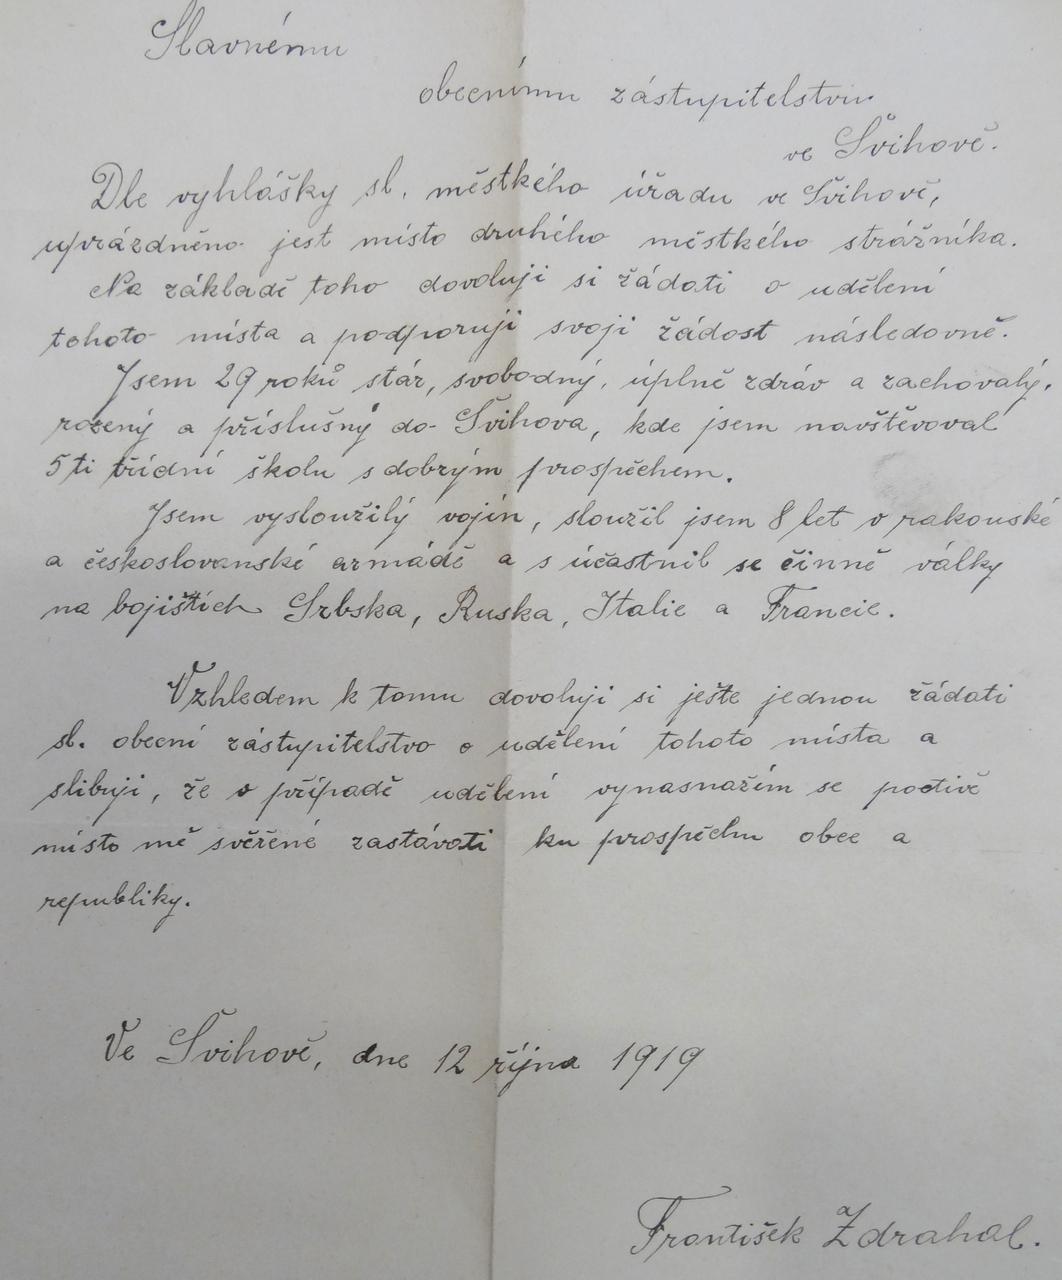 Slavnému
obecnímu zástupitelstvu
ve Švihově.
Dle vyhlášky sl. městkého úřadu ve Švihově,
uprázdněno jest místo druhého městkého strážníka.
Na základě toho dovoluji si žádati o udělení
tohoto místa a podporuji svoji žádost následovně.
Jsem 29 roků stár, svobodný, úplně zdráv a zachovalý,
rozený a příslušný do Švihova, kde jsem navštěvoval
5ti třídní školu s dobrým prospěchem.
Jsem vysloužilý vojín, sloužil jsem 8 let v rakouské
a československé armádě a súčastnil se činně války
na bojištích Srbska, Ruska, Italie a Francie.
Vzhledem k tomu dovoluji si ješte jednou žádati
sl. obecní zástupitelstvo o udělení tohoto místa a
slibuji, že v případě udělení vynasnažím se poctivě
místo mě svěřené zastávati ku prospěchu obce a
republiky.
Ve Švihově, dne 12 října 1919
František Zdrahal.